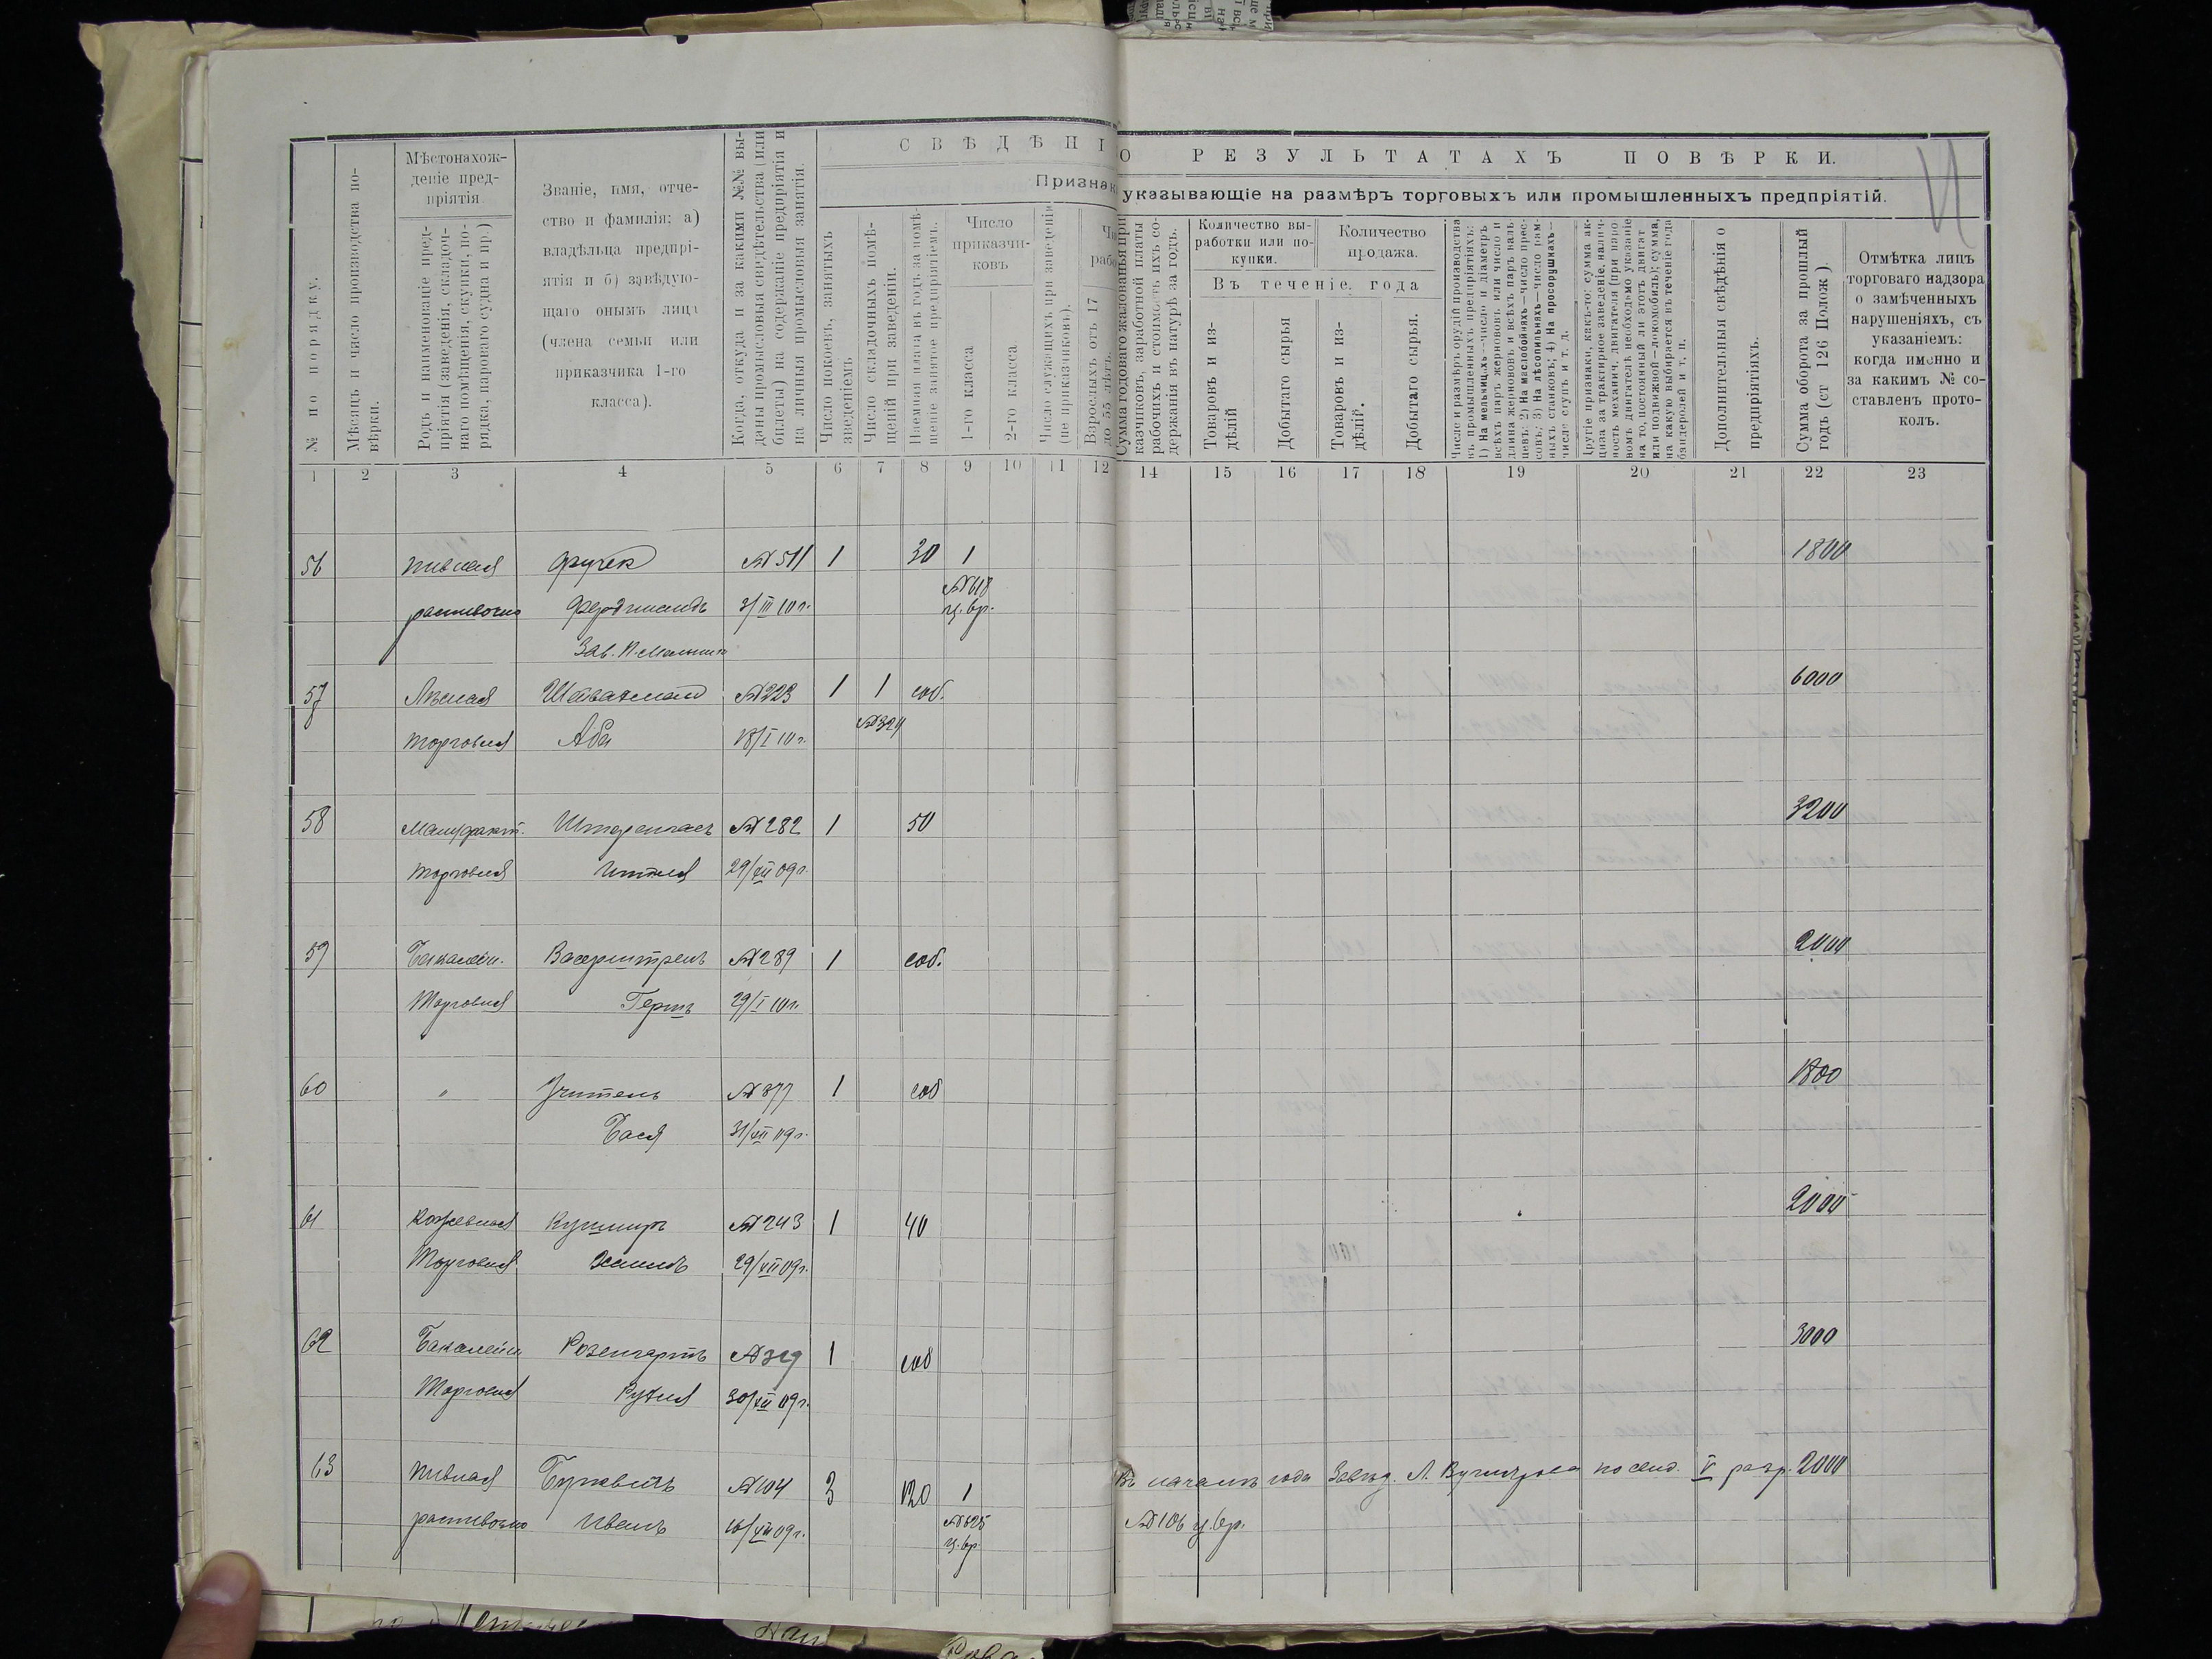 СВѢДѢНІ О РЕЗУЛЬТАТАХЪ ПОВѢРКИ.
Признак указывающіе на размѣръ торговыхъ или промышленныхъ предпріятій.
№ по порядку.
Мѣсяцъ и число производства по-
вѣрки.
Мѣстонахож-
деніе пред-
пріятія
Родъ и наименованіе пред-
пріятія (заведенія, складоч-
наго помѣщенія, скупки, по-
ряда, пароваго судна и пр.)
Званіе, имя, отче-
ство и фамилія: а)
владѣльца предпрі-
ятія и б) завѣдую-
щаго онымъ лица
(члена семьи или
приказчика 1-го
класса).
Когда, откуда и за какими №№ вы-
даны промысловыя свидѣтельства (или
билеты) на содержаніе предпріятія и
на личныя промысловыя занятія.
Число покоевъ, занятыхъ
зведеніемъ
Число складочныхъ помѣ-
щеній при заведеніи.
Наемная плата въ годъ за помѣ-
щеніе занятое предпріятіемъ.
Число
приказчи-
ковъ
1-го класса
2-го класса.
Число служащихъ при заведеніи
(не приказчиковъ).
Взрослыхъ отъ 17
до 55 лѣтъ.
Сумма годоваго жалованья при
казчиковъ, заработной платы
рабочихъ и стоимость ихъ со-
держанія въ натурѣ за годъ.
Количество вы-
работки или по-
купки.
Количество
продажа.
Въ теченіе года
Товаровъ и из-
дѣлій
Добытаго сырья
Товаровъ и из-
дѣлій.
Добытаго сырья.
Число и размѣръ орудій производства
въ промышленныхъ предпріятіяхъ:
1) На мельницахъ—число и діаметръ
всѣхъ паръ жерновов. или число и
длина жернововъ и всѣхъ паръ валь
цевъ: 2) На маслобойняхъ—число прес-
совъ; 3) На лѣсопильняхъ—число рам-
ныхъ станковъ; 4) На просорушкахъ—
число ступъ и т. д.
Другіе признаки, какъ-то: сумма ак-
циза за трактирное заведеніе, налич-
ность механич. двигателя (при паро
вомъ двигателѣ необходимо указаніе
на то, постоянный ли этотъ двигат
или подвижной—локомобиль); сумма,
на какую выбирается въ теченіе года
бандеролей и т, п.
Дополнительныя свѣдѣнія о
предпріятіяхъ.
Сумма оборота за прошлый
годъ (ст 126 Полож ).
Отмѣтка лицъ
торговаго надзора
о замѣченныхъ
нарушеніяхъ, съ
указаніемъ:
когда именно и
за какимъ № со-
ставленъ прото-
колъ.
1 2 3 4 5 6 7 8 9 10 11 12 14 15 16 17 18 19 20 21 22 23
56 пивная Фучек № 511 1 30 1 1800
распивочно Фердинандъ 3/III 10 г. №618
ц. вр.
Зав.
57 Лѣсная № 223 1 1 соб. 6000
торговля Аба 18/I 10 г.
58 Мануфакт. № 282 1 50 3200
торговля 29/XII 09 г.
59 Бакалейн. Васерштренъ № 289 1 соб. 2000
Торговля Гершъ 29/I 10 г.
60 " Учитель № 377 1 соб 1800
Бася 31/XII 09 г.
61 Кожевная Кушниръ № 243 1 40 2000
Торговля 29/XII 09 г.
62 Бакалейн Розенгартъ 1 соб 3000
Торговля Рухля 30/XII 09 г.
63 пивная № 104 3 120 1 Въ началѣ года Завѣд. Л. V разр. 2000
распивочно Иванъ 16/XII 09 г. №625 № 106 ц. вр.
ц. вр.